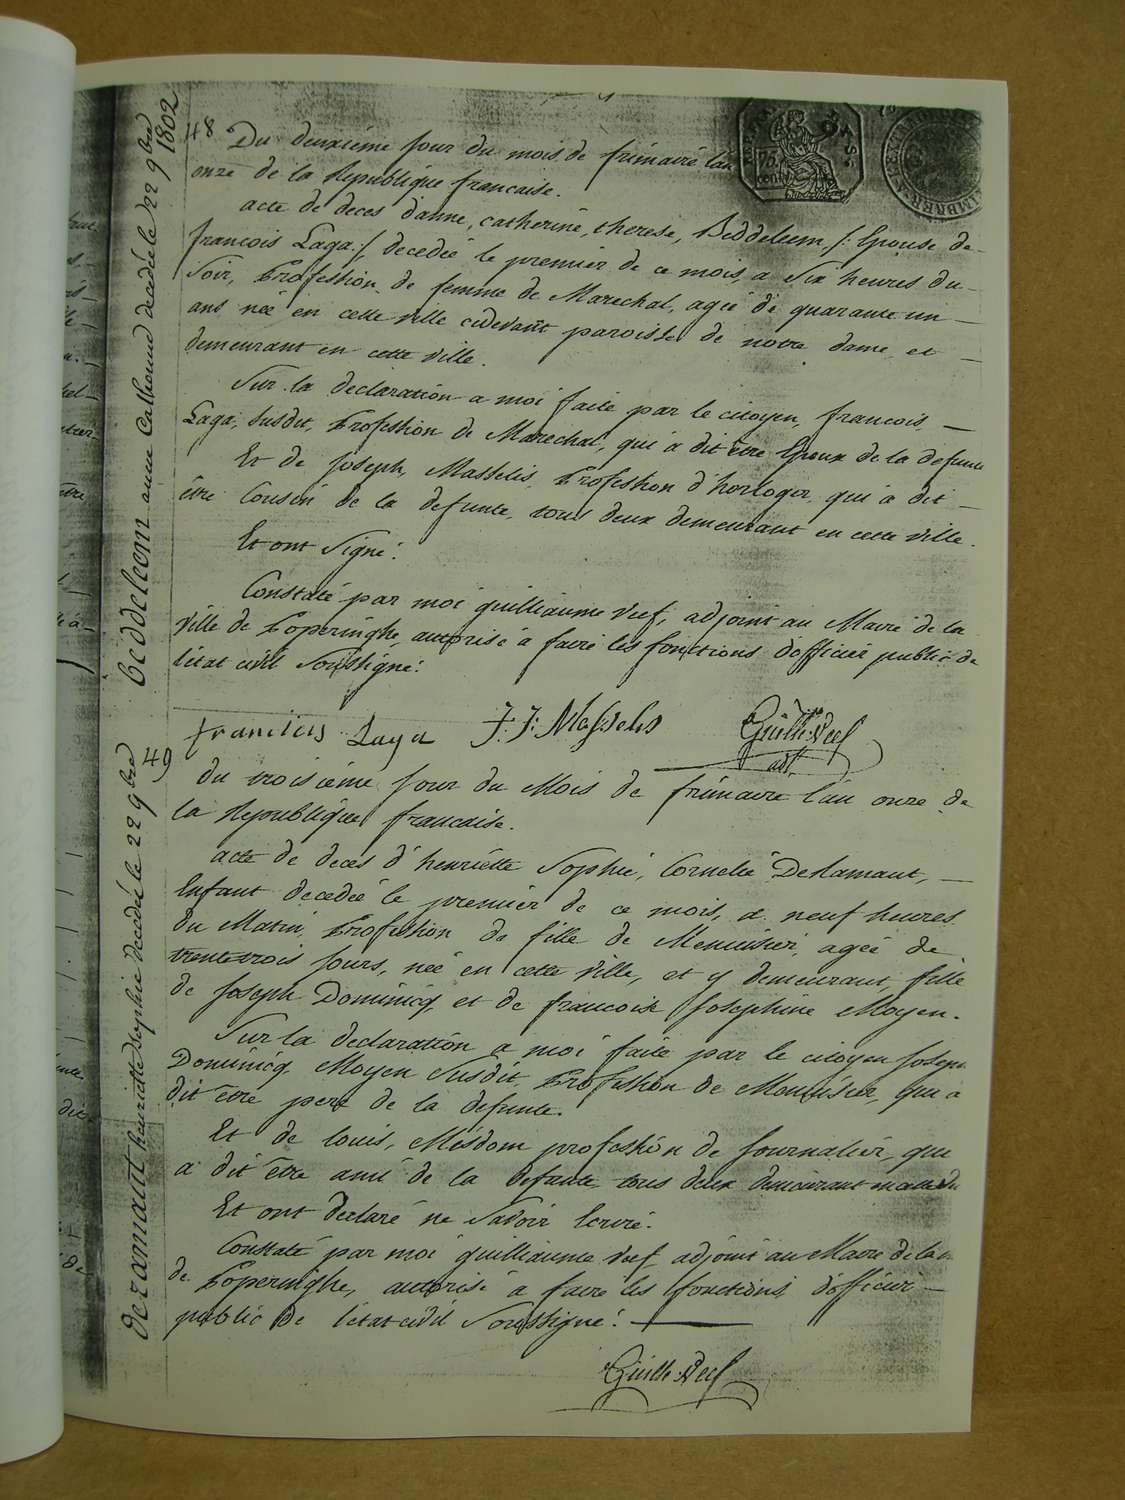 48 Du deuxiéme jour du mois de frimaire l'an
onze de la Republique francaise.
acte de deces d'anne, catherine, therese, Beddeleem, /: Epouse de
francois Laga :/, decedée le premier de ce mois, a Six heures du
Soir, Profession de femme de Marechal, ageé de quarante un
ans neé en cette ville cidevant paroisse de notre dame, et
demeurant en cette ville.
Sur la declaration a moi faite par le citoyen, francois,
Laga, Susdit, Profession de Marechal, qui a dit être Epoux de la defunte
Et de Joseph, Masselis, Profession d'horloger, qui a dit
être Cousin de la defunte, tous deux demeurant en cette ville.
Et ont Signé.
Constaté par moi guilliaume Vief, adjoint au Maire de la
Ville de Poperinghe, autorisé a faire les fonctions d'officier public de
l'état civil Soussigné:
francicus Laga J: J: Masselis Guille: Vief
adt.
49 du troisiéme jour du Mois de frimaire l'an onze de
la Republique francaise.
acte de deces d'henriette Sophie, Cornelie Deramaut,
Enfant decedée le premier de ce mois, a neuf heures
du Matin, Profession de fille de Menuisier, ageé de
trentetrois jours, neé en cette Ville, et y demeurant, fille
de Joseph Dominicq, et de francoise Josephine Moyen.
Sur la declaration a moi faite par le citoyen Joseph
Dominicq Moyen Susdit, Profession de Menuisier, qui a
dit être pere de la defunte.
Et de louis, Mesdom profession de journalier, qui
a dit être ami de la defunte tous deux demeurant
Et ont declaré ne Savoir Ecrire.
Constaté par moi guilliaume Vief adjoint au Maire de la
de Poperinghe, autorisé a faire les fonctions d'officier
public de l'état civil Soussigné:
Guille: Vief
beddeleem anne Catherine decedée le 22 9bre
1802
deramaut henriette Sophie decedée le 22 9bre